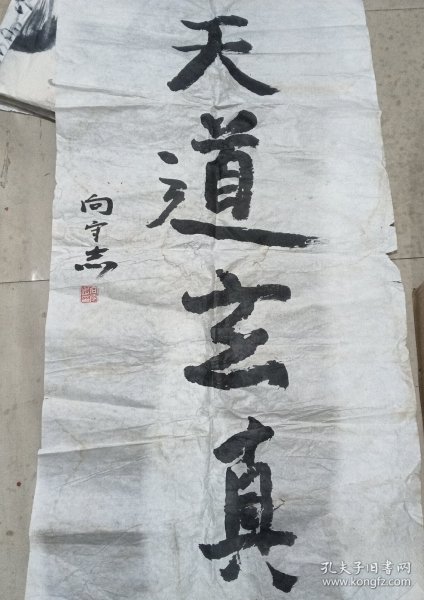 天道玄真
向守志
孔夫子旧书网
www.kongfz.com